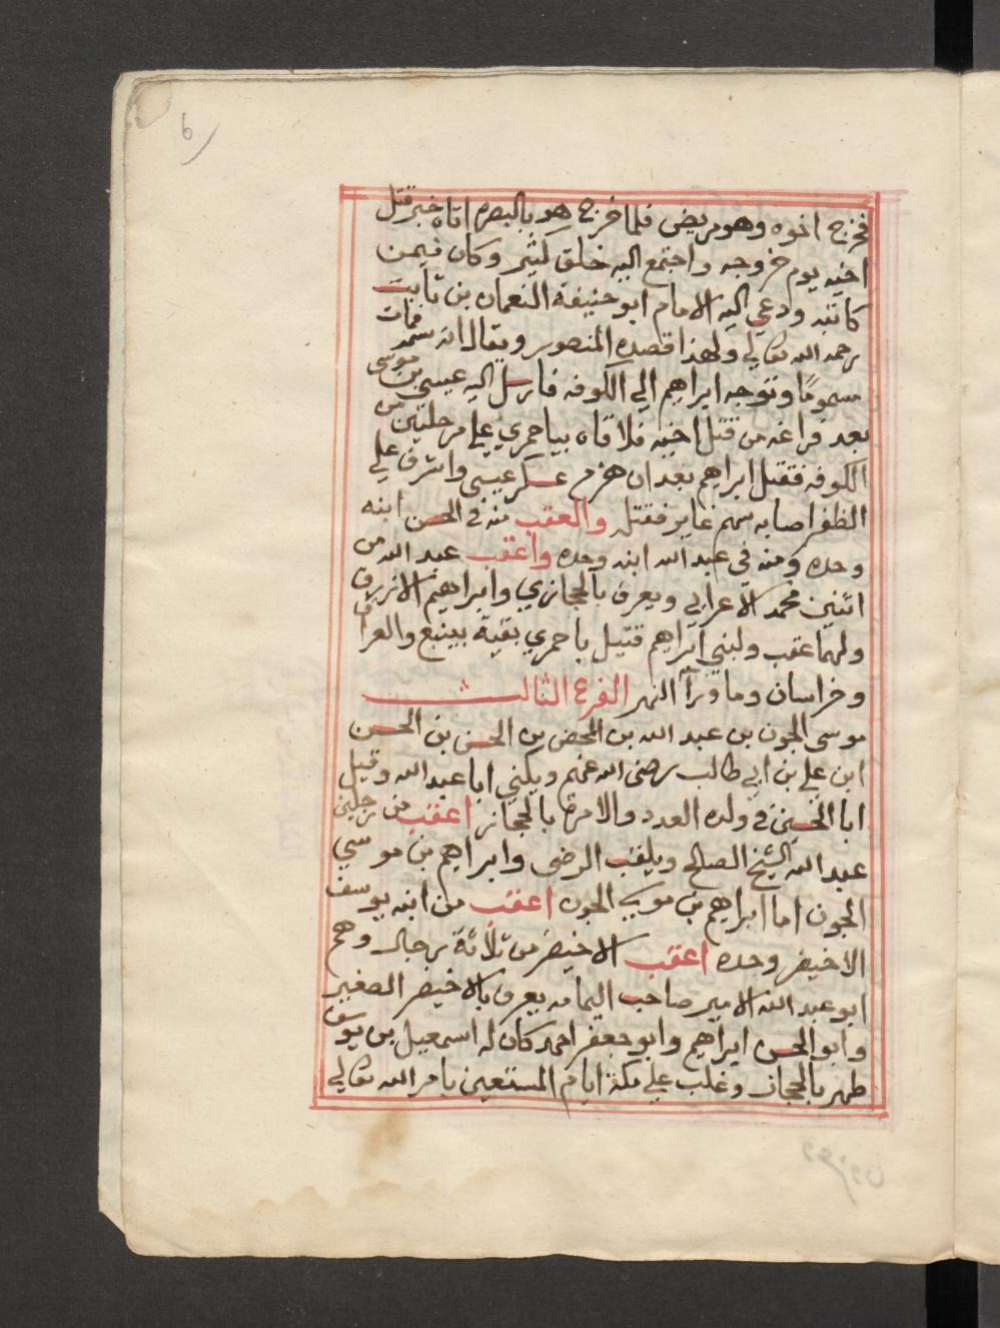 6
فخرج اخوه وهو مريض فلما خرج هو بالبصره اتاه خبر قتل
اخيه يوم خروجه واجتمع اليه خلق كثير وكان فيمن
كاتبه ودعي اليه الامام ابو حنيفة النعمان بن ثابت
رحمه الله تعالي ولهذا قصده المنصور ويقال انه سمه فمات
مسمومًا وتوجه ابراهيم الي الكوفه فارسل اليه عيسي بن موسى
بعد فراغه من قتل اخيه فلاقاه بباحمري علي مرحلتين من
الكوفه فقتل ابراهيم بعد ان هزم عسكر عيسى واشرف علي
الظفر اصابه سهم غاير فقتله والعقب منه في الحسن ابنه
وحده ومنه في عبد الله ابنه وحده واعقب عبد الله من
اثنين محمد الاعرابي ويعرف بالحجازي وابراهيم الازرق
ولهما عقب ولبني ابراهيم قتيل باحمري بقية بينبع والعراق
وخراسان وما ورآ النهر الفرع الثالث
موسى الجون بن عبد الله بن المحض بن الحسن بن الحسن
ابن علي بن ابي طالب رضى الله عنهم ويكني ابا عبد الله وقيل
ابا الحسين في ولده العدد والامرة بالحجاز اعقب من رجلين
عبد الله الشيخ الصالح ويلقب الرضى وابراهيم بن موسي
الجون اما ابراهيم بن موسي الجون اعقب من ابنه يوسف
الاخيضر وحده اعقب الاخيضر من ثلاثة رجال وهم
ابو عبد الله الامير صاحب اليمامه يعرف بالاخيضر الصغير
وابو الحسن ابراهيم وابو جعفر احمد كان له اسمعيل بن يوسف
ظهر بالحجاز وغلب علي مكة ايام المستعين بامر الله تعالي